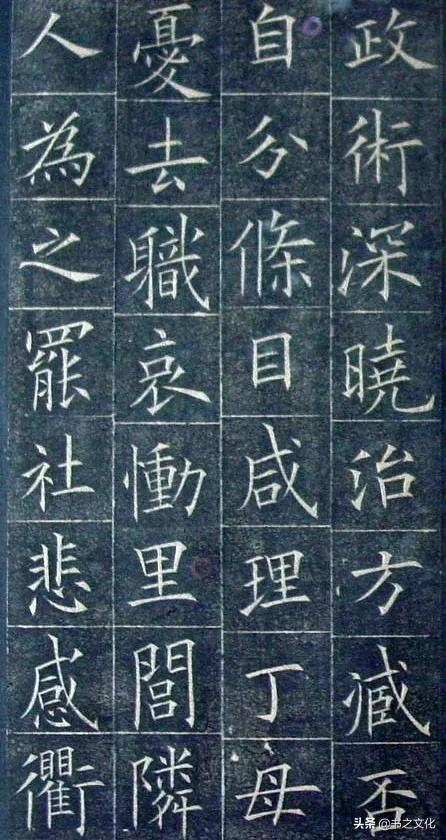 政術深曉治方臧否
自分條目咸理丁母
憂去職哀慟里閭隣
人為之罷社悲感衢
头条 @书之文化